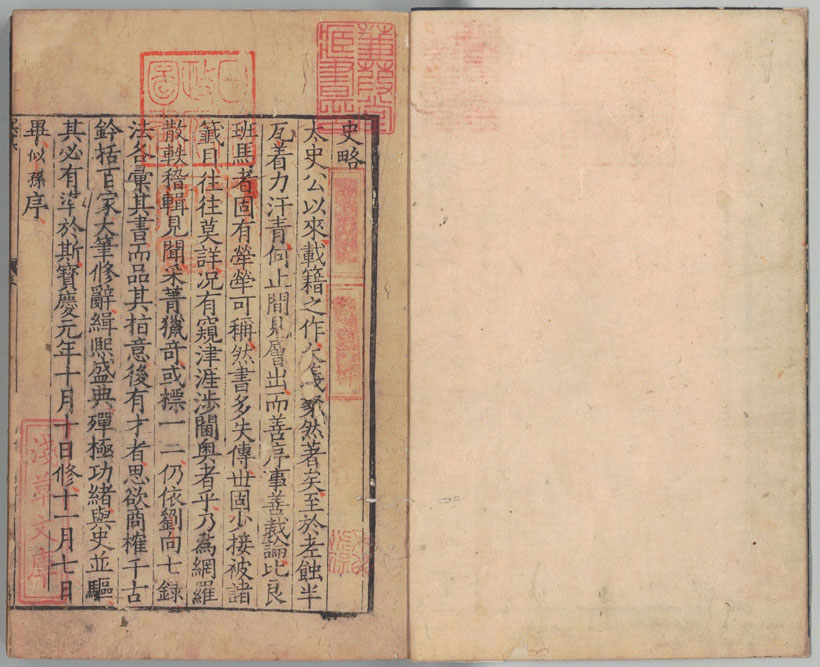 史略
太史公以來載籍之作大義粲然著矣至於老蝕半
瓦着力汗青何止間見層出而善序事善裁論比良
班馬者固有犖犖可稱然書多失傳世固少接被諸
籤目往往莫詳況有窺津涯涉閫奥者乎乃爲網羅
散軼稽輯見聞采菁獵奇或標一二仍依劉向七録
法各彙其書而品其㫖意後有才者思欲商榷千古
鈐括百家大筆修辭緝熙盛典殫極功緒與史並驅
其必有準於斯寶慶元年十月十日修十一月七日
畢似孫序
蒹葭堂
藏書印
淺草文庫